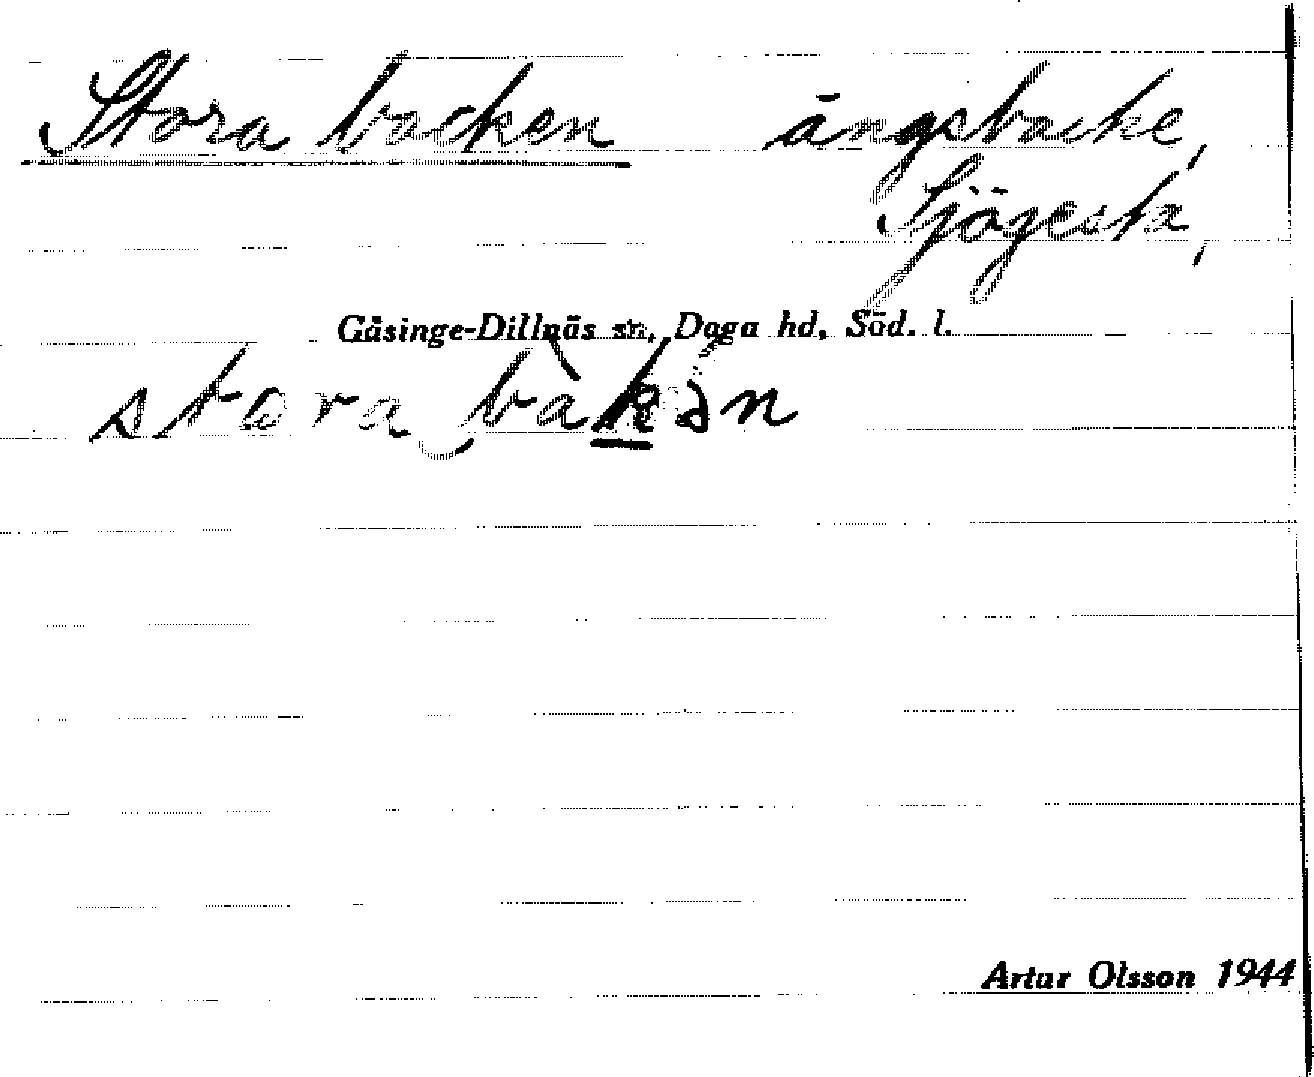 Stora backen ängsbacke,
Sjögesta,
Gåsinge-Dillnäs sn, Daga hd, Söd. l.
stora‿bàk̲ən
Artur Olsson 1944